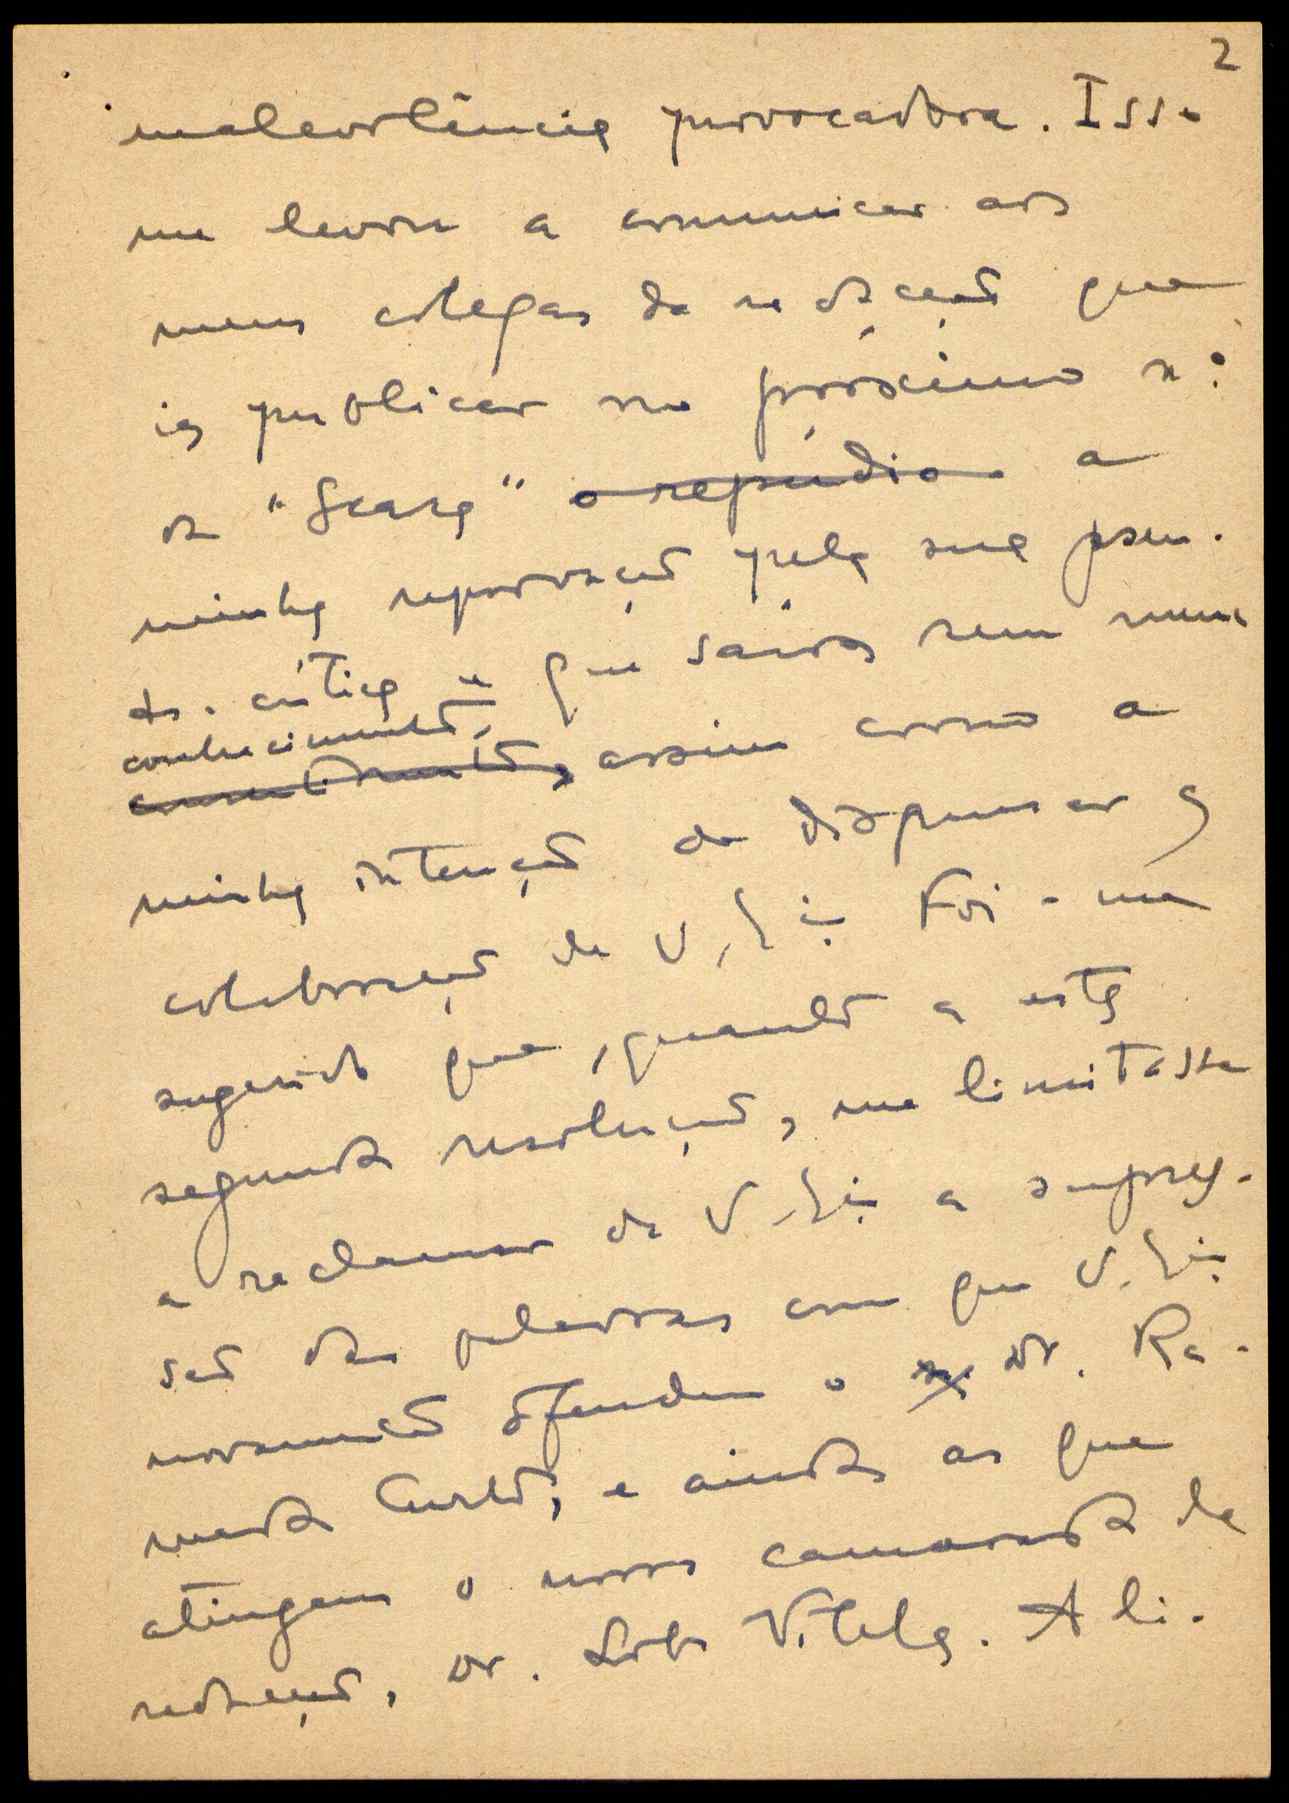 2
malevolência provocadora. Isso
me levou a comunicar aos
meus colegas da redacção que
ia publicar no próximo nº
da "Seara" o repúdio a
minha reprovação pela sua pseu-
do-crítica que saíra sem meu
conhecimento,
assim como a
minha intenção de dispensar a
colaboração de V. Exª. Foi-me
sugerido que, quanto a esta
segunda resolução, me limitasse
a reclamar de V. Exª a supres-
são das palavras com que V. Exª
novamente ofendeu o Dr. Ra-
mada Curto, e ainda as que
atingem o nosso camarada de
redacção, Dr. Lobo Vilela. Ali-